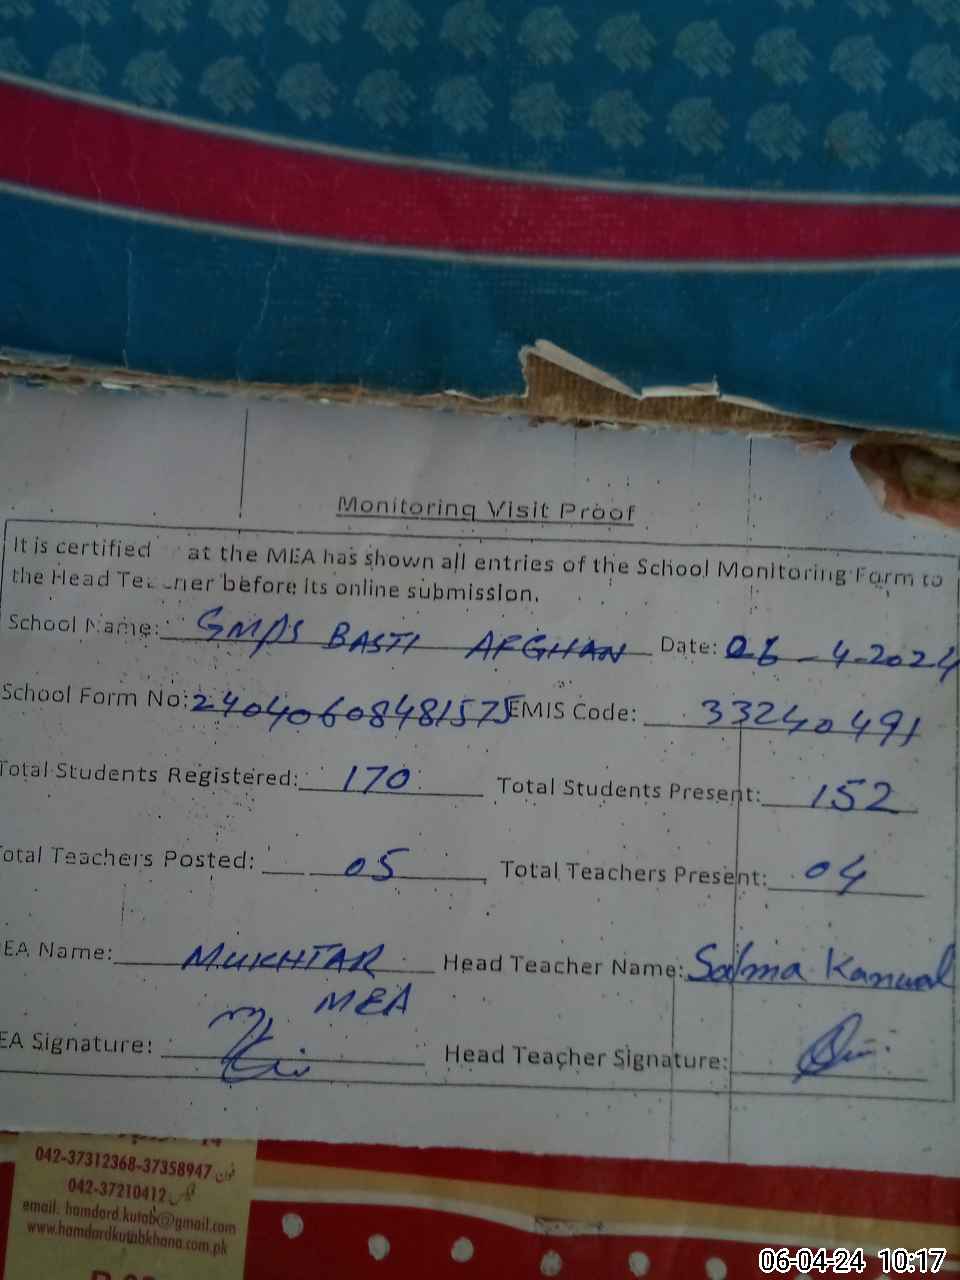 Monitoring Visit Proof
It is certified at the MEA has shown all entries of the School Monitoring Form to
the Head Teacher before its online submission.
School Name: GMPS BASTI AFGHAN Date: 06-4-2024
School Form No: 24040608481575 EMIS Code: 33240491
Total Students Registered: 170 Total Students Present: 152
Total Teachers Posted: 05 Total Teachers Present: 04
EA Name: MUKHTAR Head Teacher Name: Salma Kanwal
MEA
EA Signature: Head Teacher Signature:
042-37312368-37358947 فون
042-37210412 فیکس
email: hamdard.kutab@gmail.com
www.hamdardkutabkhana.com.pk
06-04-24 10:17